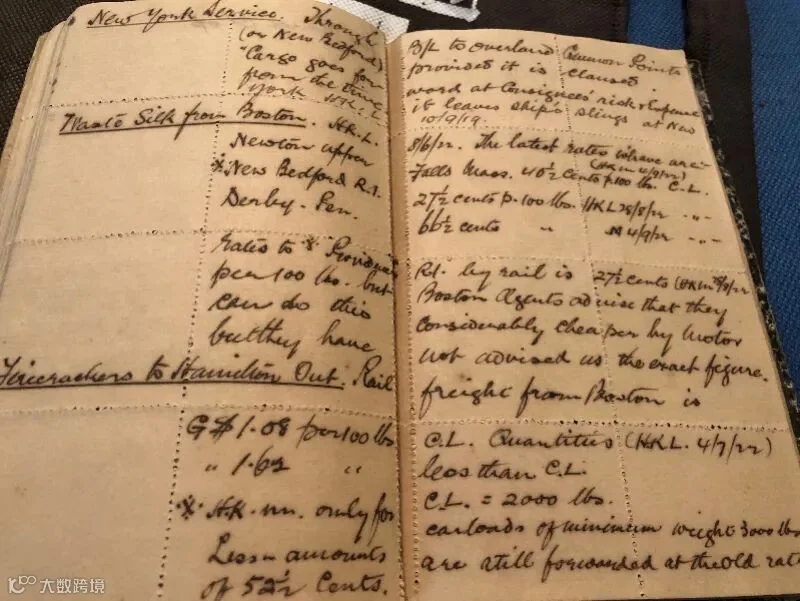 New York Service. Through
(or New Bedford)
"Cargo goes for
from the time
York. H.K.L.
Waste Silk from Boston. H.K.L.
Newton upper
※ New Bedford R.I.
Derby. Pen.
rates to ※ Providence
per 100 lbs. but
can do this
but they have
Firecrackers to Hamilton Ont. Rail
G$ 1.08 per 100 lbs
" 1.62 "
※ H.K. only for
Less amounts
of 52½ Cents.
B/L to Overland Common Points
provided it is claused
ward at Consignees' risk & Expense
it leaves ship's slings at New
10/9/19.
8/6/22. The latest rates we have are:-
4/9/22)
Falls Mass. 40½ Cents p 100 lbs. C.L.
27½ cents p. 100 lbs. HKL 28/8/22 " "
66½ cents " 4/9/22 " "
R.I. by rail is 27½ cents
Boston Agents advise that they
considerably cheaper by motor
not advised us the exact figure.
freight from Boston is
C.L. Quantities (H.K.L. 4/7/22)
less than C.L.
C.L. = 2000 lbs.
carloads of minimum weight 3000 lbs
are still forwarded at the old rate
大数跨境